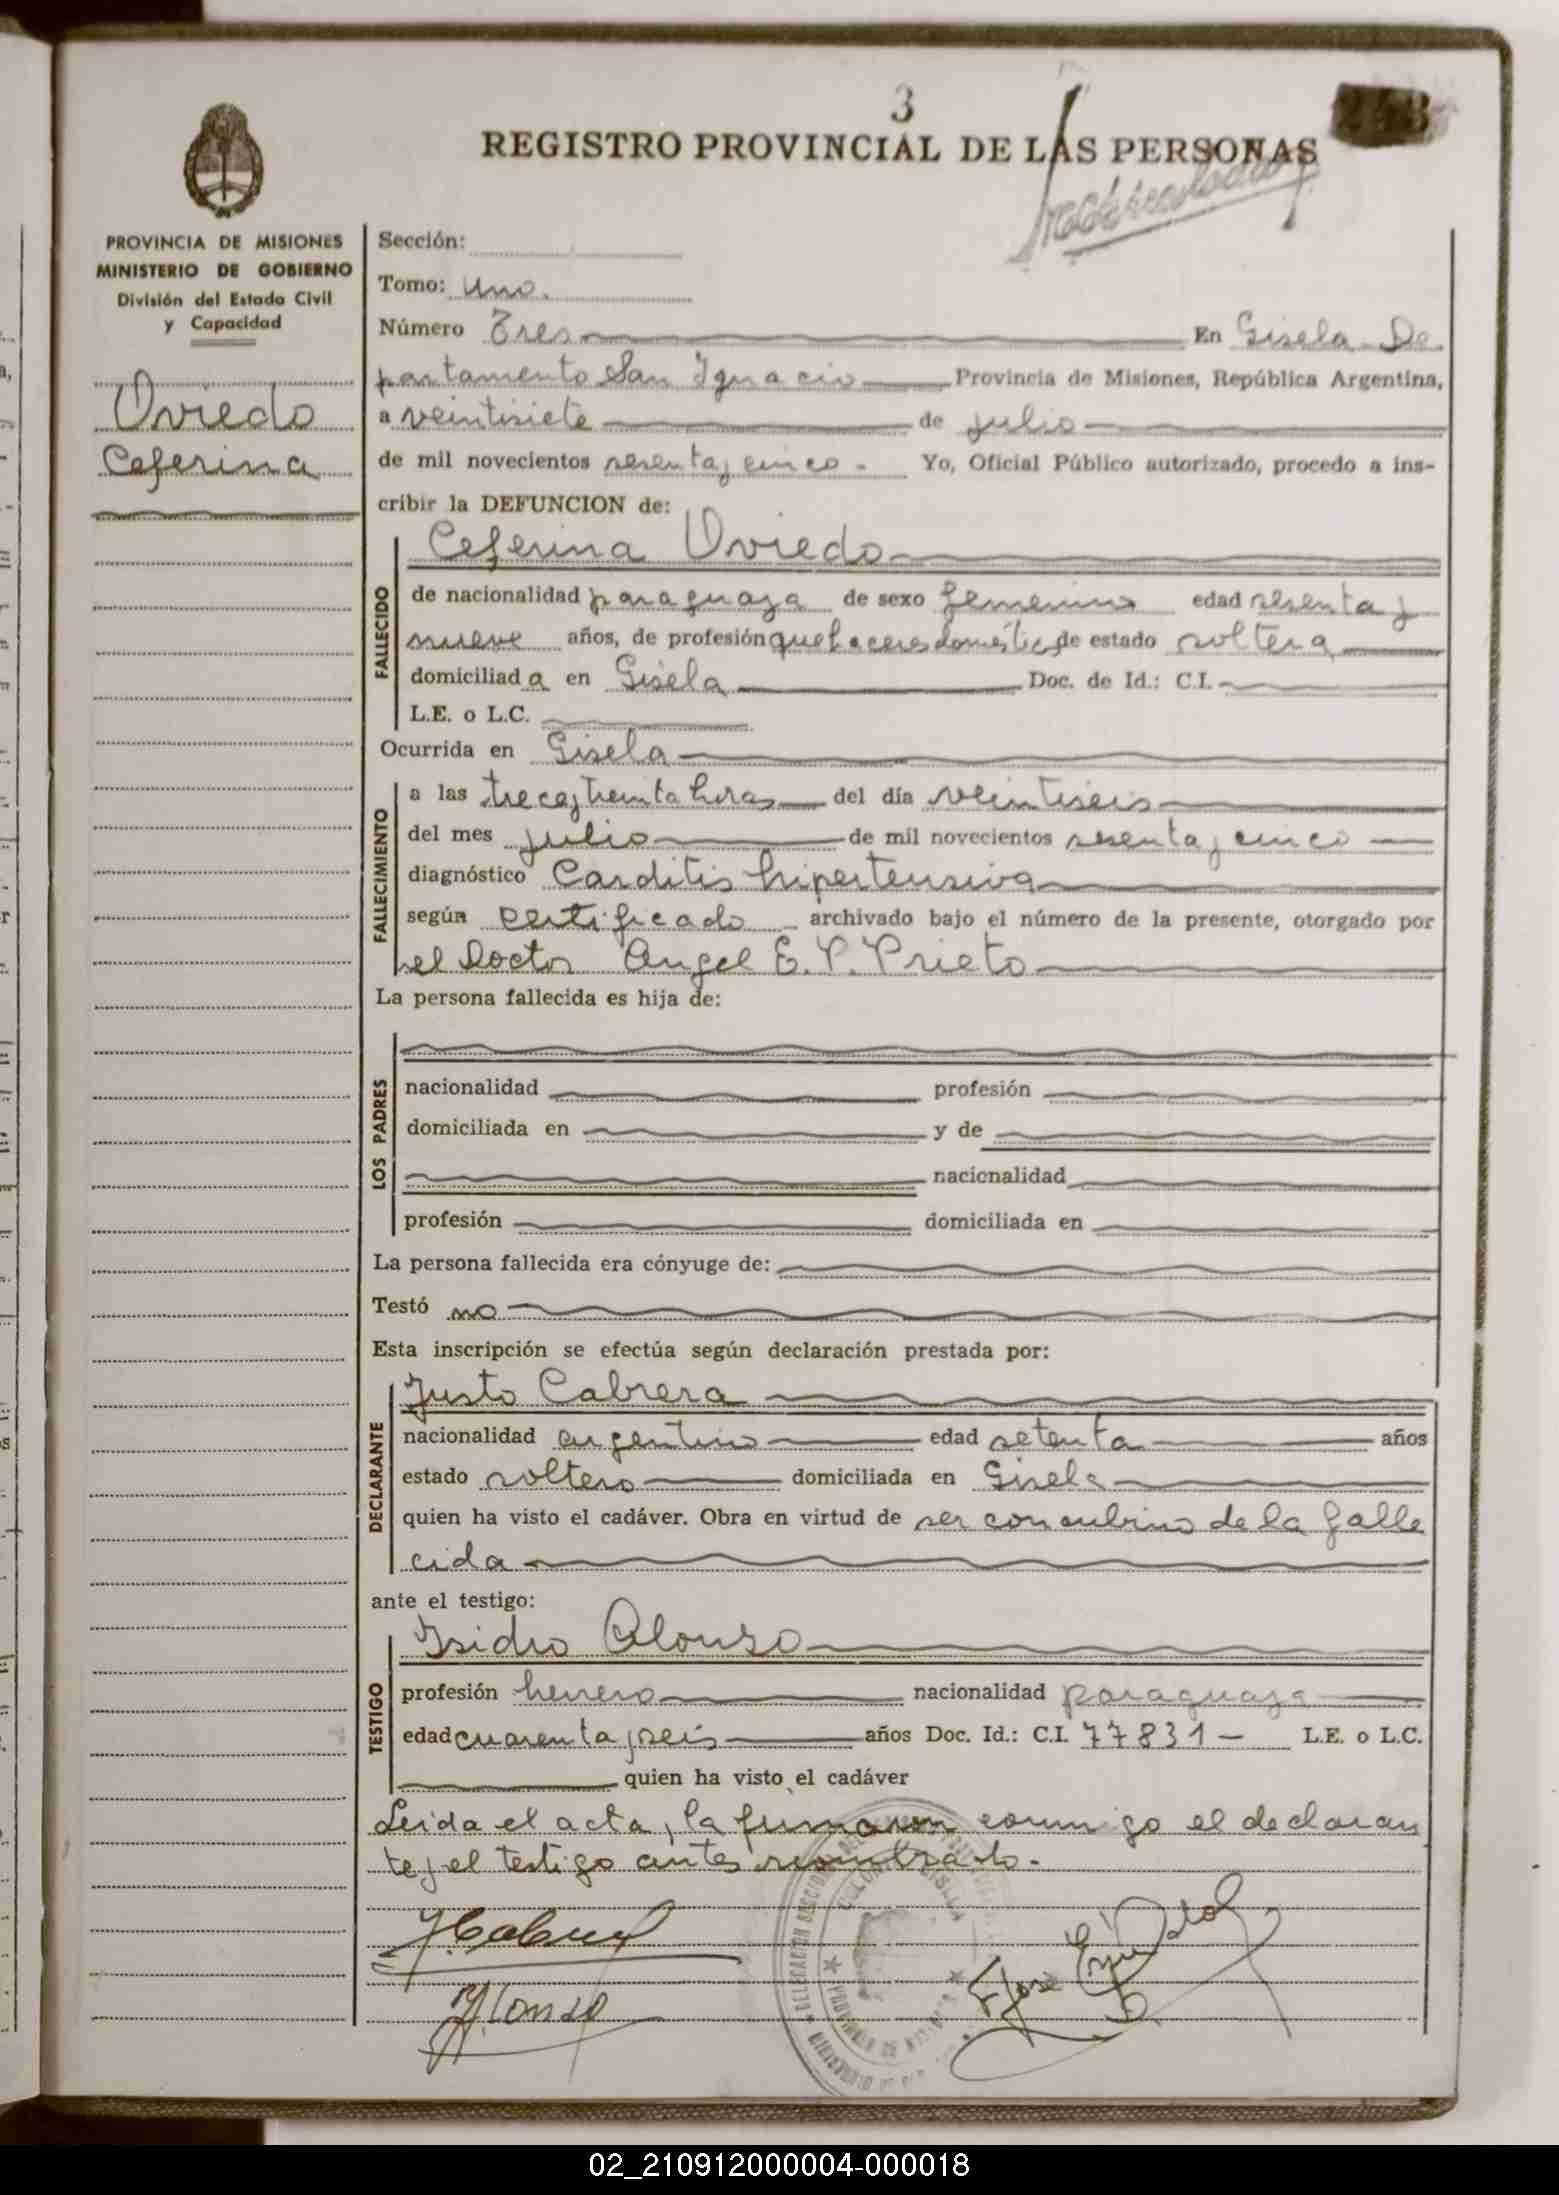 3
REGISTRO PROVINCIAL DE LAS PERSONAS
PROVINCIA DE MISIONES
MINISTERIO DE GOBIERNO
División del Estado Civil
y Capacidad
Oviedo
Ceferina
Sección:
Tomo: Uno.
Número Tres En Gisela De
partamento San Ignacio Provincia de Misiones, República Argentina,
a veintisiete de julio
de mil novecientos sesenta y cinco. Yo, Oficial Público autorizado, procedo a ins-
cribir la DEFUNCION de:
FALLECIDO
Ceferina Oviedo
de nacionalidad paraguaya de sexo femenino edad sesenta y
nueve años, de profesión quehaceres domésticos de estado soltera
domiciliada en Gisela Doc. de Id.: C.I.
L.E. o L.C.
Ocurrida en Gisela
FALLECIMIENTO
a las trece y treinta horas del día veintiseis
del mes julio de mil novecientos sesenta y cinco
diagnóstico Carditis hipertensiva
según certificado archivado bajo el número de la presente, otorgado por
el Doctor Angel E. P. Prieto
La persona fallecida es hija de:
LOS PADRES
nacionalidad profesión
domiciliada en y de
nacionalidad
profesión domiciliada en
La persona fallecida era cónyuge de:
Testó no
Esta inscripción se efectúa según declaración prestada por:
DECLARANTE
Justo Cabrera
nacionalidad argentino edad setenta años
estado soltero domiciliada en Gisela
quien ha visto el cadáver. Obra en virtud de ser concubino de la falle
cida
ante el testigo:
TESTIGO
Isidro Alonso
profesión herrero nacionalidad paraguaya
edad cuarenta y seis años Doc. Id.: C.I. 77831- L.E. o L.C.
quien ha visto el cadáver
Leida el acta, la firmaron conmigo el declaran
te y el testigo antes nombrado.
J. Cabrera
Y. Alonso
02_210912000004-000018